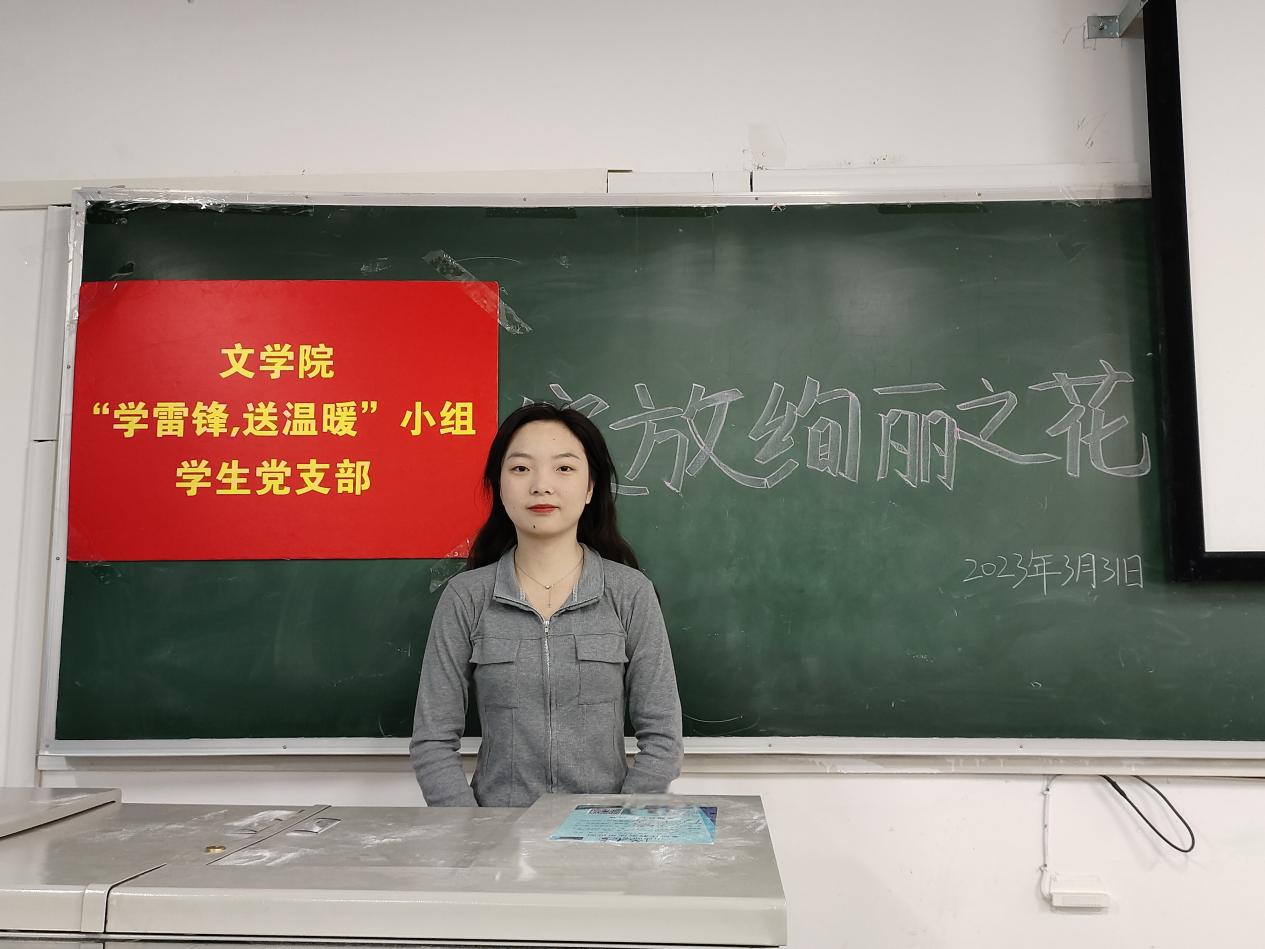 文学院
“学雷锋,送温暖”小组
学生党支部
放绚丽之花
2023年3月31日